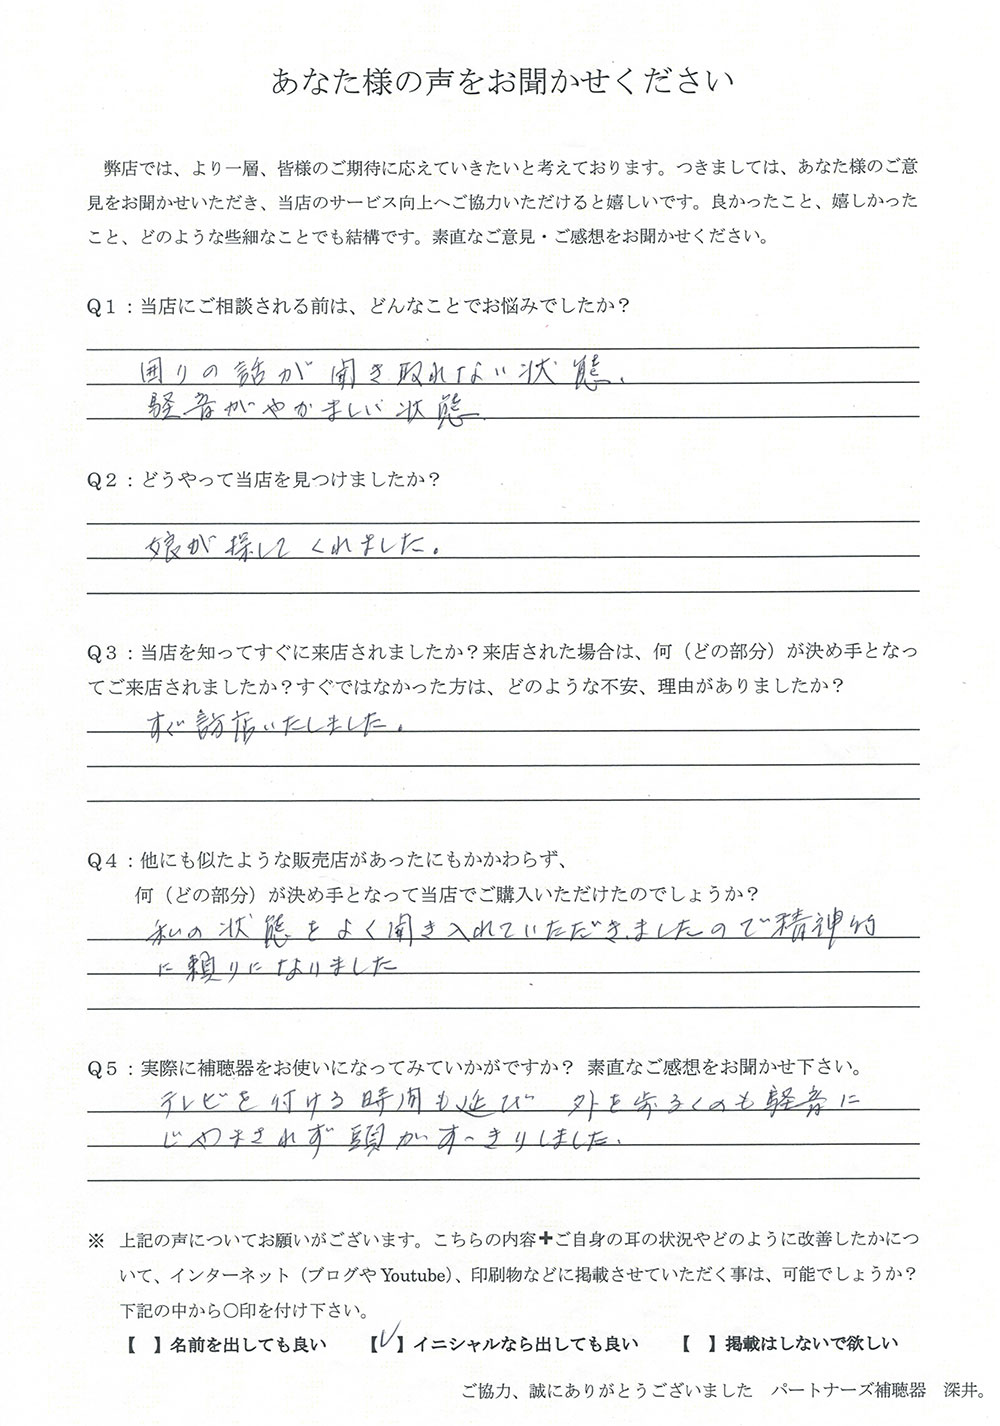 あなた様の声をお聞かせください
弊店では、より一層、皆様のご期待に応えていきたいと考えております。つきましては、あなた様のご意
見をお聞かせいただき、当店のサービス向上へご協力いただけると嬉しいです。良かったこと、嬉しかった
こと、どのような些細なことでも結構です。素直なご意見・ご感想をお聞かせください。
Q1：当店にご相談される前は、どんなことでお悩みでしたか？
囲りの話が聞き取れない状態、
騒音がやかましい状態
Q2：どうやって当店を見つけましたか？
娘が探してくれました。
Q3：当店を知ってすぐに来店されましたか？来店された場合は、何（どの部分）が決め手となっ
てご来店されましたか？すぐではなかった方は、どのような不安、理由がありましたか？
すぐ訪店いたしました。
Q4：他にも似たような販売店があったにもかかわらず、
何（どの部分）が決め手となって当店でご購入いただけたのでしょうか？
私の状態をよく聞き入れていただきましたので精神的
に頼りになりました
Q5：実際に補聴器をお使いになってみていかがですか？ 素直なご感想をお聞かせ下さい。
テレビを付ける時間も延び 外を歩るくのも騒音に
じゃまされず頭がすっきりしました、
※ 上記の声についてお願いがございます。こちらの内容+ご自身の耳の状況やどのように改善したかにつ
いて、インターネット（ブログや Youtube）、印刷物などに掲載させていただく事は、可能でしょうか？
下記の中から〇印を付け下さい。
【 】名前を出しても良い 【✓】イニシャルなら出しても良い 【 】掲載はしないで欲しい
ご協力、誠にありがとうございました パートナーズ補聴器 深井。